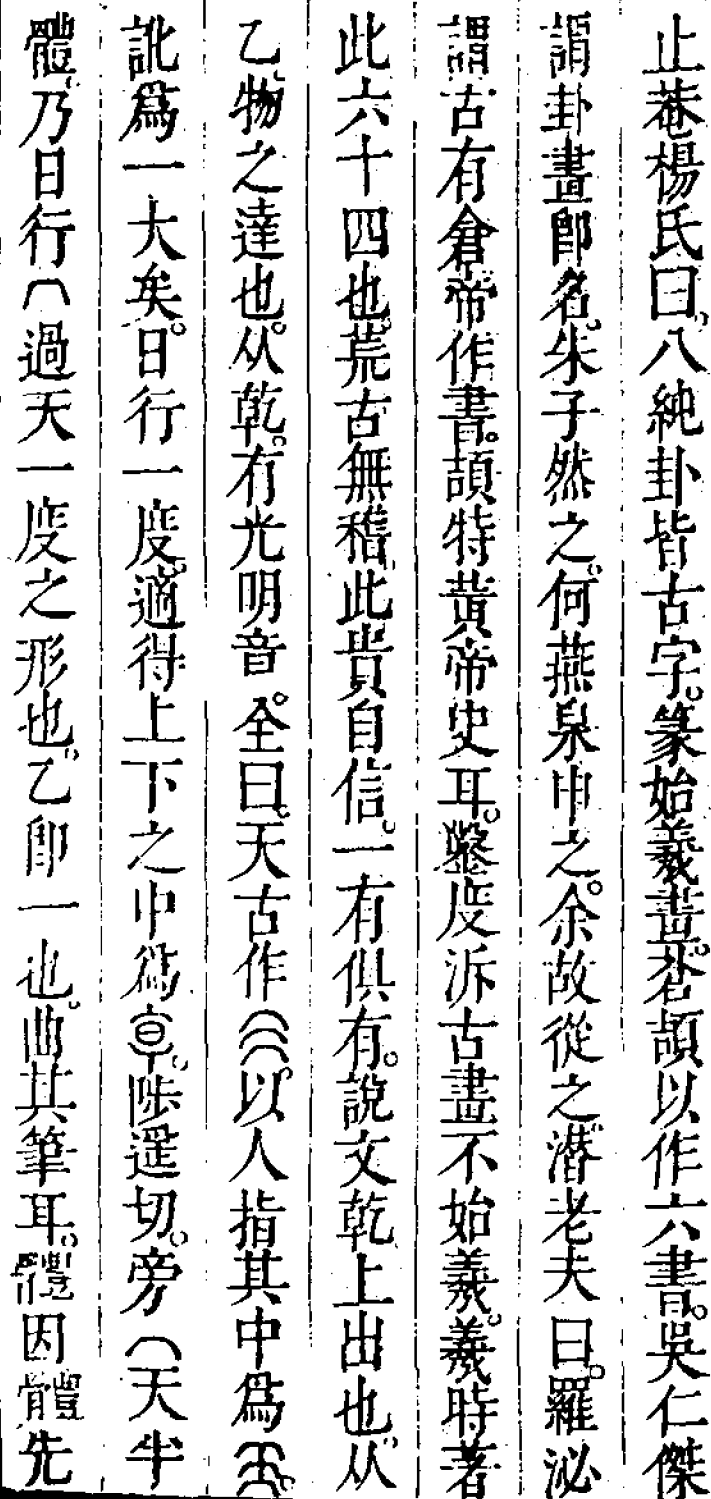 止菴楊氏曰八純卦皆古字。篆始羲畫。蒼頡以作六書。吳仁傑
謂卦畫卽名。朱子然之。何燕泉申之。余故從之。潛老夫曰。羅泌
謂古有倉帝作書。頡特黃帝史耳。鑿度泝古畫不始羲。羲時著
此六十四也。荒古無稽。此貴自信。一有俱有。說文乾上出也。从
乙物之達也。从倝。有光明音。全曰。天古作以人指其中爲
訛爲一大矣。日行一度。適得上下之中爲𠅘。陟遥切。旁(天半
體乃日行(過天一度之形也。乙卽一也。曲其筆耳。體因體先